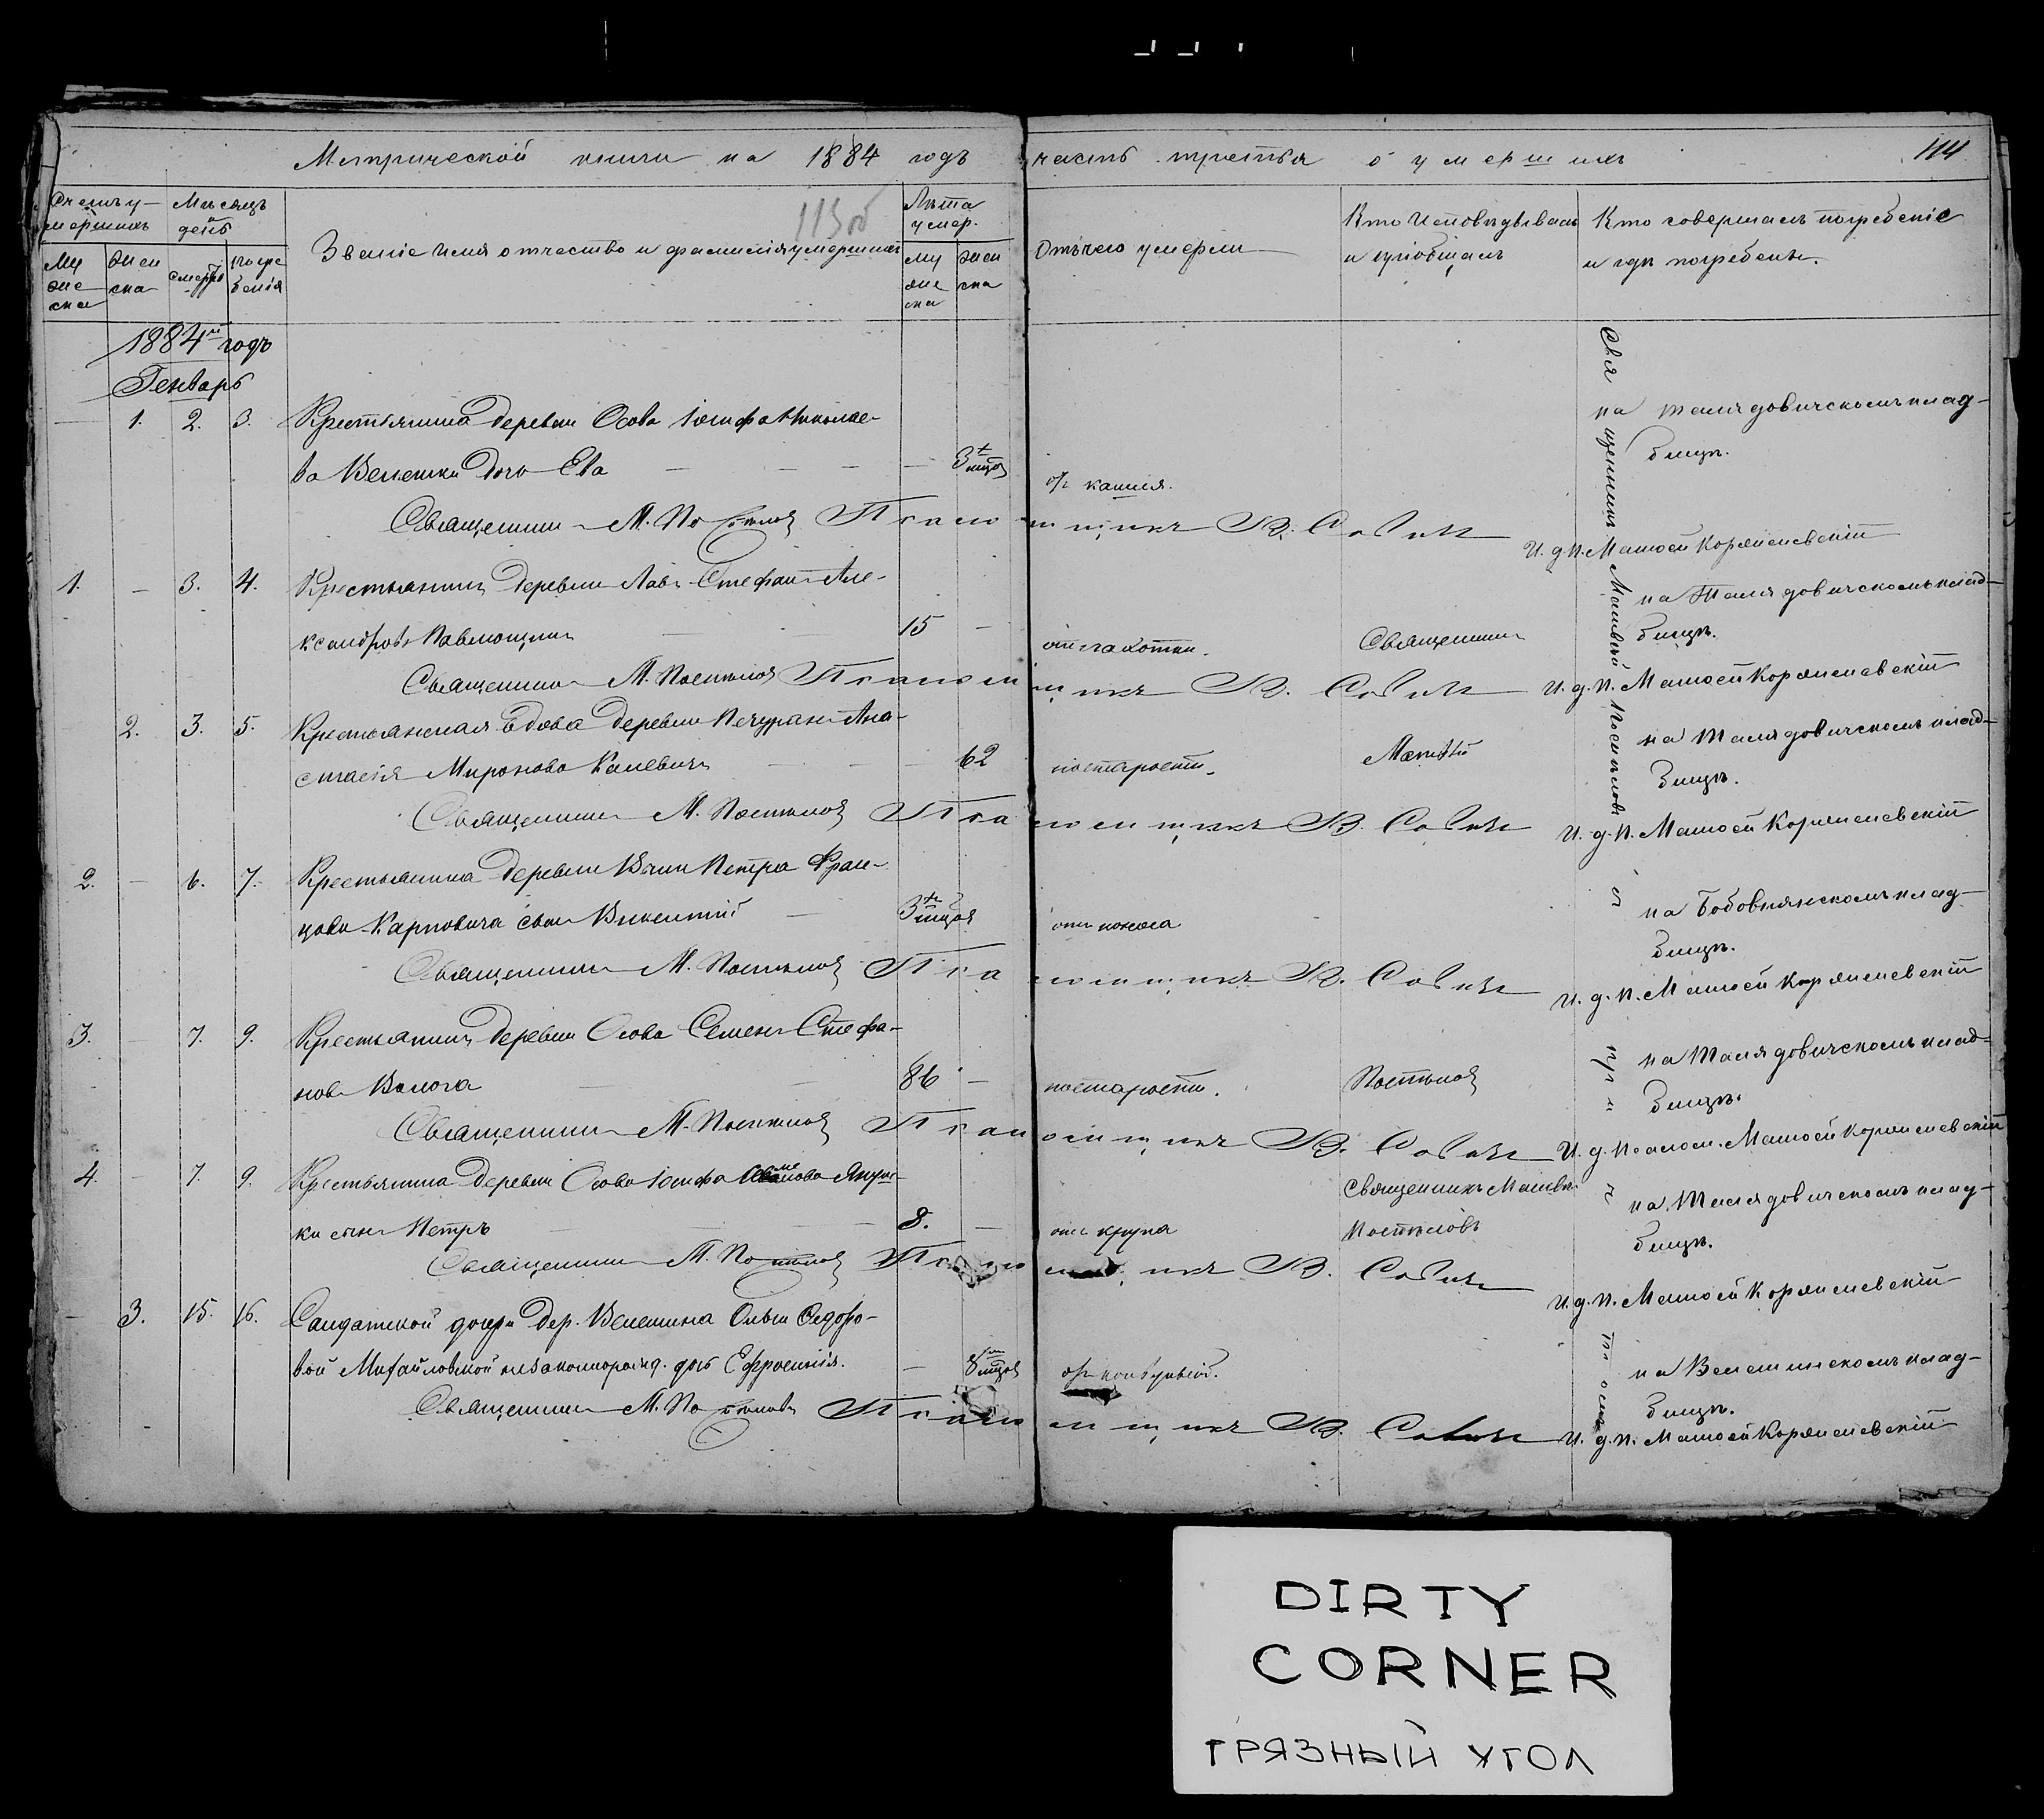 Метрической книги на 1884 годъ часть третья о умершихъ
114
113об
Счетъ у-
мершихъ
Мѣсяцъ
и
день
Званіе имя отчество и фамилія умершихъ
Лѣта
умер.
Отъ чего умерли
Кто исповѣдывалъ
и пріобщалъ
Кто совершалъ погребеніе
и гдѣ погребены.
Му
же
ска
жен
ска
смерти
погре
бенія
му
же
ска
жен
ска
1884й годъ
Генварь
— 1. 2. 3. Крестьянина деревни Осова Іосифа Николае-
ва Велешки дочь Ева — — — 3 мцов
от кашля.
на Телядовичскомъ клад-
бищѣ.
Священникъ М. Поспѣловъ Псаломщикъ В. Савичъ И. д. п. Матѳей Корженевскій
1. — 3. 4. Крестьянинъ деревни Лавы Стефанъ Але-
ксандровъ Павлющикъ — 15 —
отъ чахотки.
Священникъ
на Телядовичскомъ клад-
бищѣ.
Священникъ М. Поспѣловъ Псаломщикъ В. Савичъ И. д. п. Матѳей Корженевскій
2. 3. 5. Крестьянская вдова деревни Печуран Ана-
стасія Миронова — — 62
по старости.
Матѳій
на Телядовичскомъ клад-
бищѣ.
Священникъ М. Поспѣловъ Псаломщикъ В. Савичъ И. д. п. Матѳей Корженевскій
2. — 6. 7. Крестьянина деревни Петра Фран-
цова Карповича сынъ Викентій — 3 мцов
отъ поноса
на Бобовнянскомъ клад-
бищѣ.
Священникъ М. Поспѣловъ Псаломщикъ В. Савичъ И. д. п. Матѳей Корженевскій
3. — 7. 9. Крестьянинъ деревни Осова Семенъ Стефа-
новъ Валога — — 86 —
по старости.
Поспѣловъ
на Телядовичскомъ клад-
бищѣ.
Священникъ М. Поспѣловъ Псаломщикъ В. Савичъ И. д. псалом. Матѳей Корженевскій
4. — 7. 9. Крестьянина деревни Осова Іосифа
ки сынъ Петръ — — — 8. —
отъ крупа
Священникъ Матвѣй
Поспѣловъ
на Телядовичскомъ клад-
бищѣ.
Священникъ М. Поспѣловъ Псаломщикъ В. Савичъ И. д. п. Матѳей Корженевскій
— 3. 15. 16. Салдатской дочери дер. Велешина Ольги Ѳедоро-
вой Михайловской незаконорожд. дочь Ефросинія. — 8 мцов
от конвульсій.
на Велешинскомъ клад-
бищѣ.
Священникъ М. Поспѣловъ Псаломщикъ В. Савичъ И. д. п. Матѳей Корженевскій
Священникъ Матвѣй Поспѣловъ съ причтомъ
DIRTY
CORNER
ГРЯЗНЫЙ УГОЛ